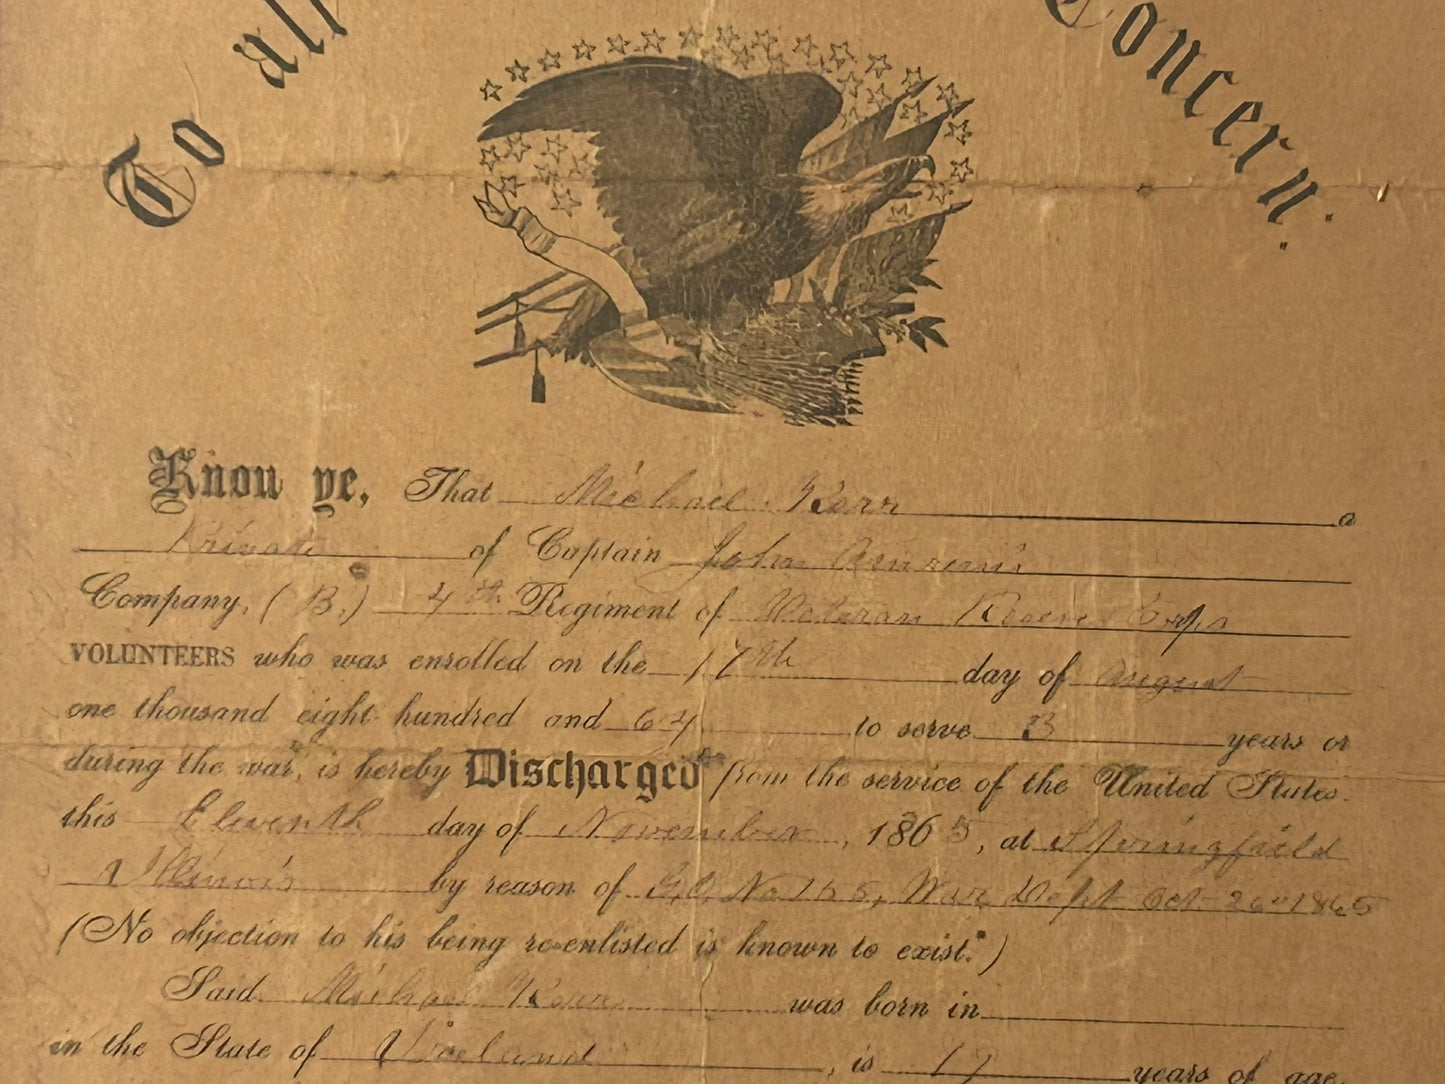 To all Concern.
Know ye, That Michael Kerr a
Private of Captain John
Company, (B.) 4th Regiment of Veteran Reserve Corps
VOLUNTEERS who was enrolled on the 17th day of August
one thousand eight hundred and 64 to serve 3 years or
during the war, is hereby Discharged from the service of the United States.
this Eleventh day of November, 1865, at Springfield
Illinois by reason of G.O. No 155, War Dept Oct 26" 1865
(No objection to his being re-enlisted is known to exist.)
Said Michael Kerr was born in
in the State of Ireland, is years of age,